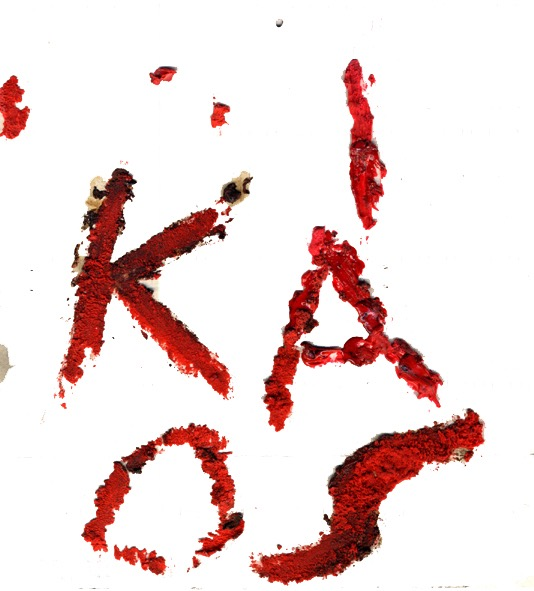 KA
OS